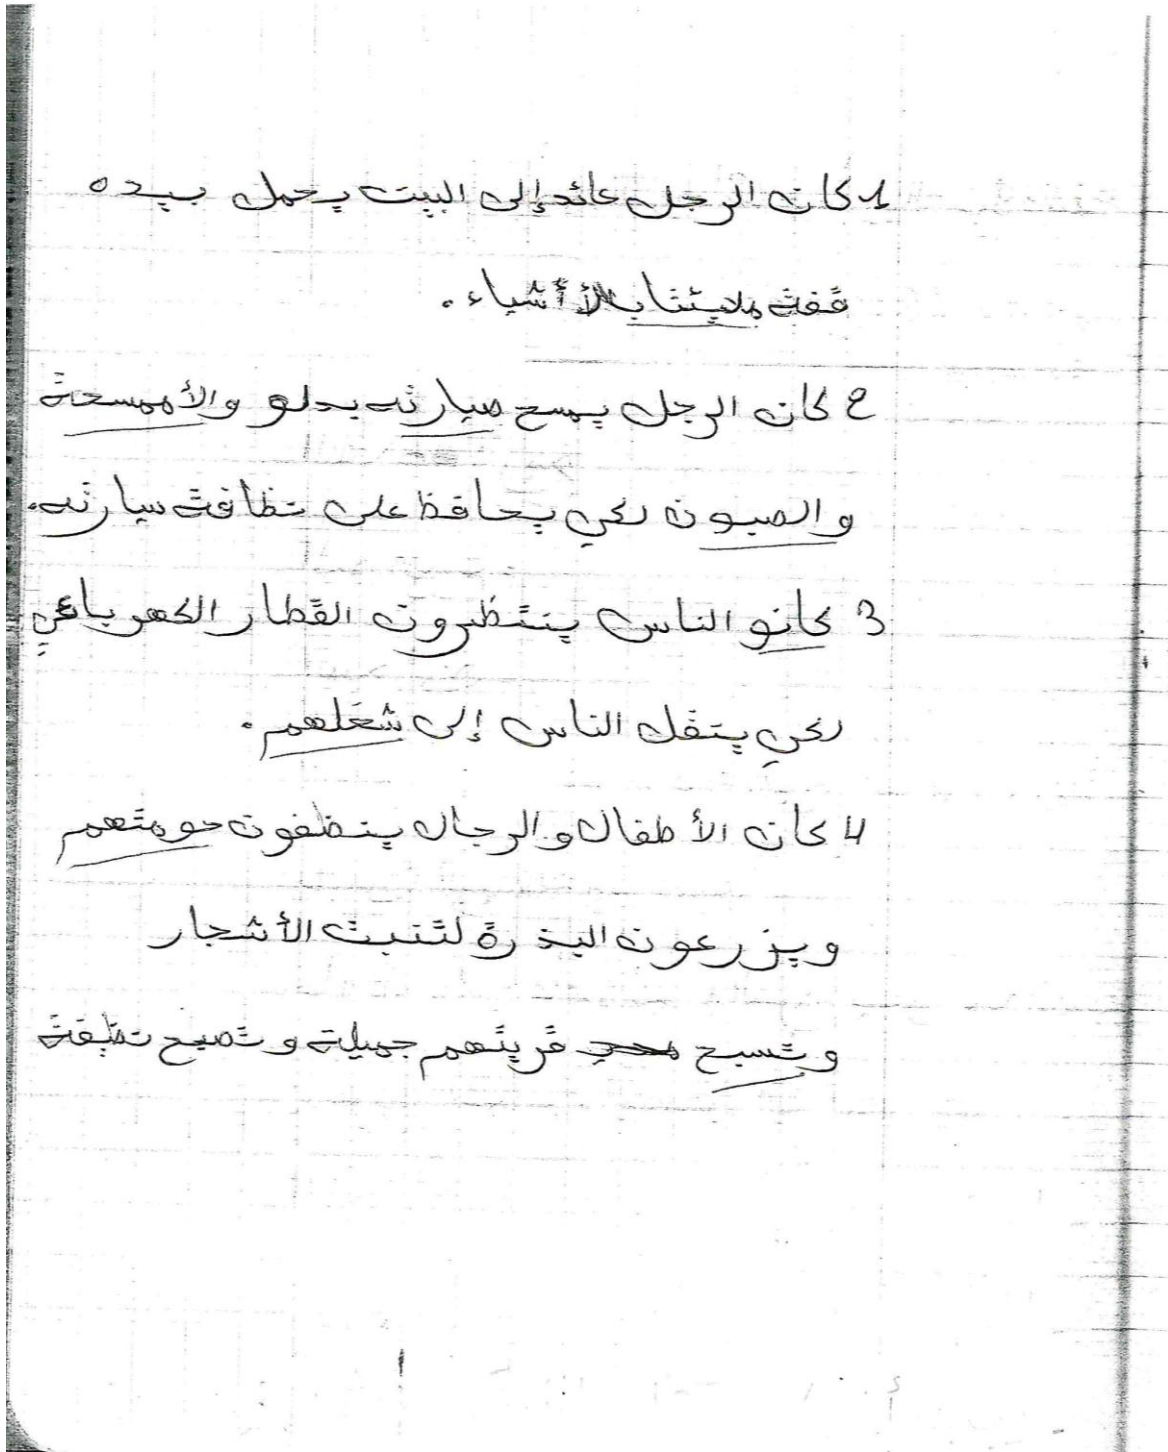 1 كان الرجل عائد إلى البيت يحمل بيده
قفة مليئتا بالأشياء.
2 كان الرجل يمسح صيارته بدلو والأممسحة
والصبون لكي يحافظ على نظافة سيارته.
3 كانو الناس ينتظرون القطار الكهربائي
لكي ينقل الناس إلى شغلهم.
4 كان الأطفال والرجال ينظفون حومتهم
ويزرعون البذرة لتنبت الأشجار
وتسبح قريتهم جميلة وتصبح نظيفة